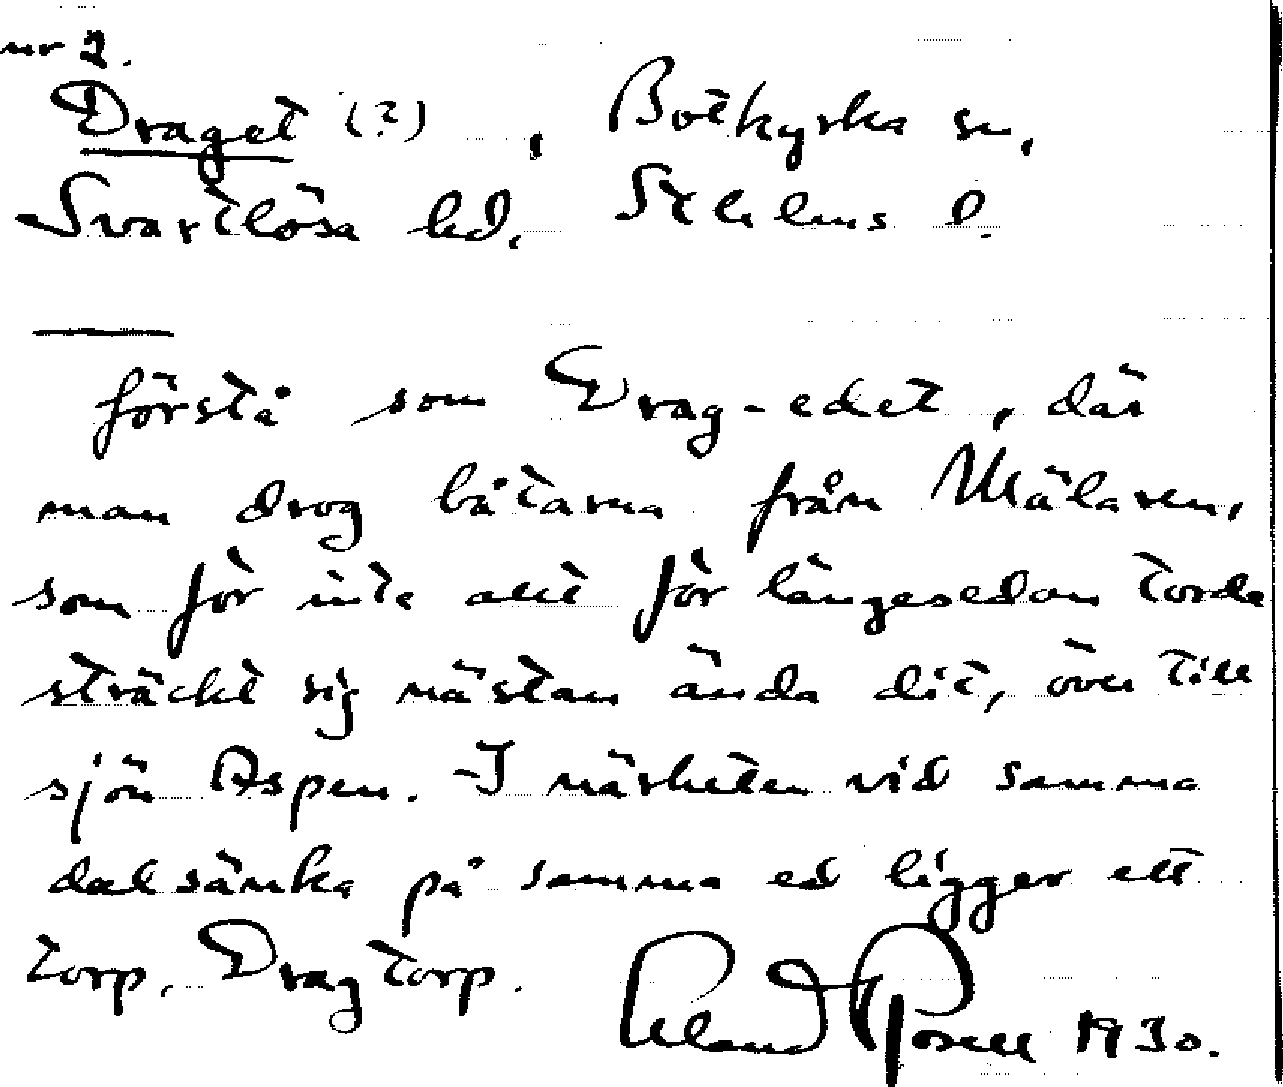 nr 2.
Draget (?), Botkyrka sn,
Svartlösa hd, Sthlms l.
förstå som Drag-edet, där
man drog båtarna från Mälaren,
som för inte allt för längesedan torde
sträckt sig nästan ända dit, över till
sjön Aspen. - I närheten vid samma
dalsänka på samma ed ligger ett
torp, Dragtorp.
Erland Rosell 1930.